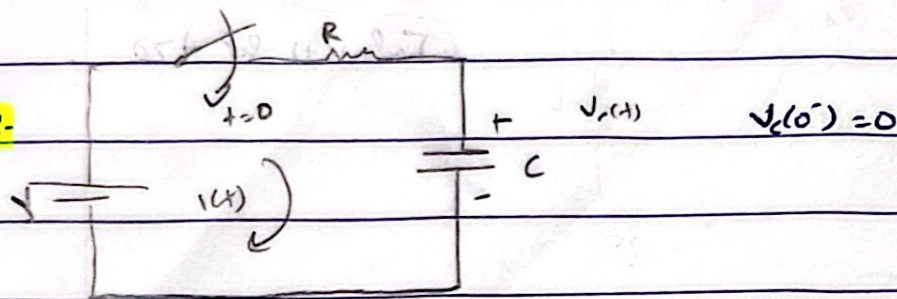 R
t=0
+ Vc(t) Vc(0⁻) = 0
V i(t) C
-